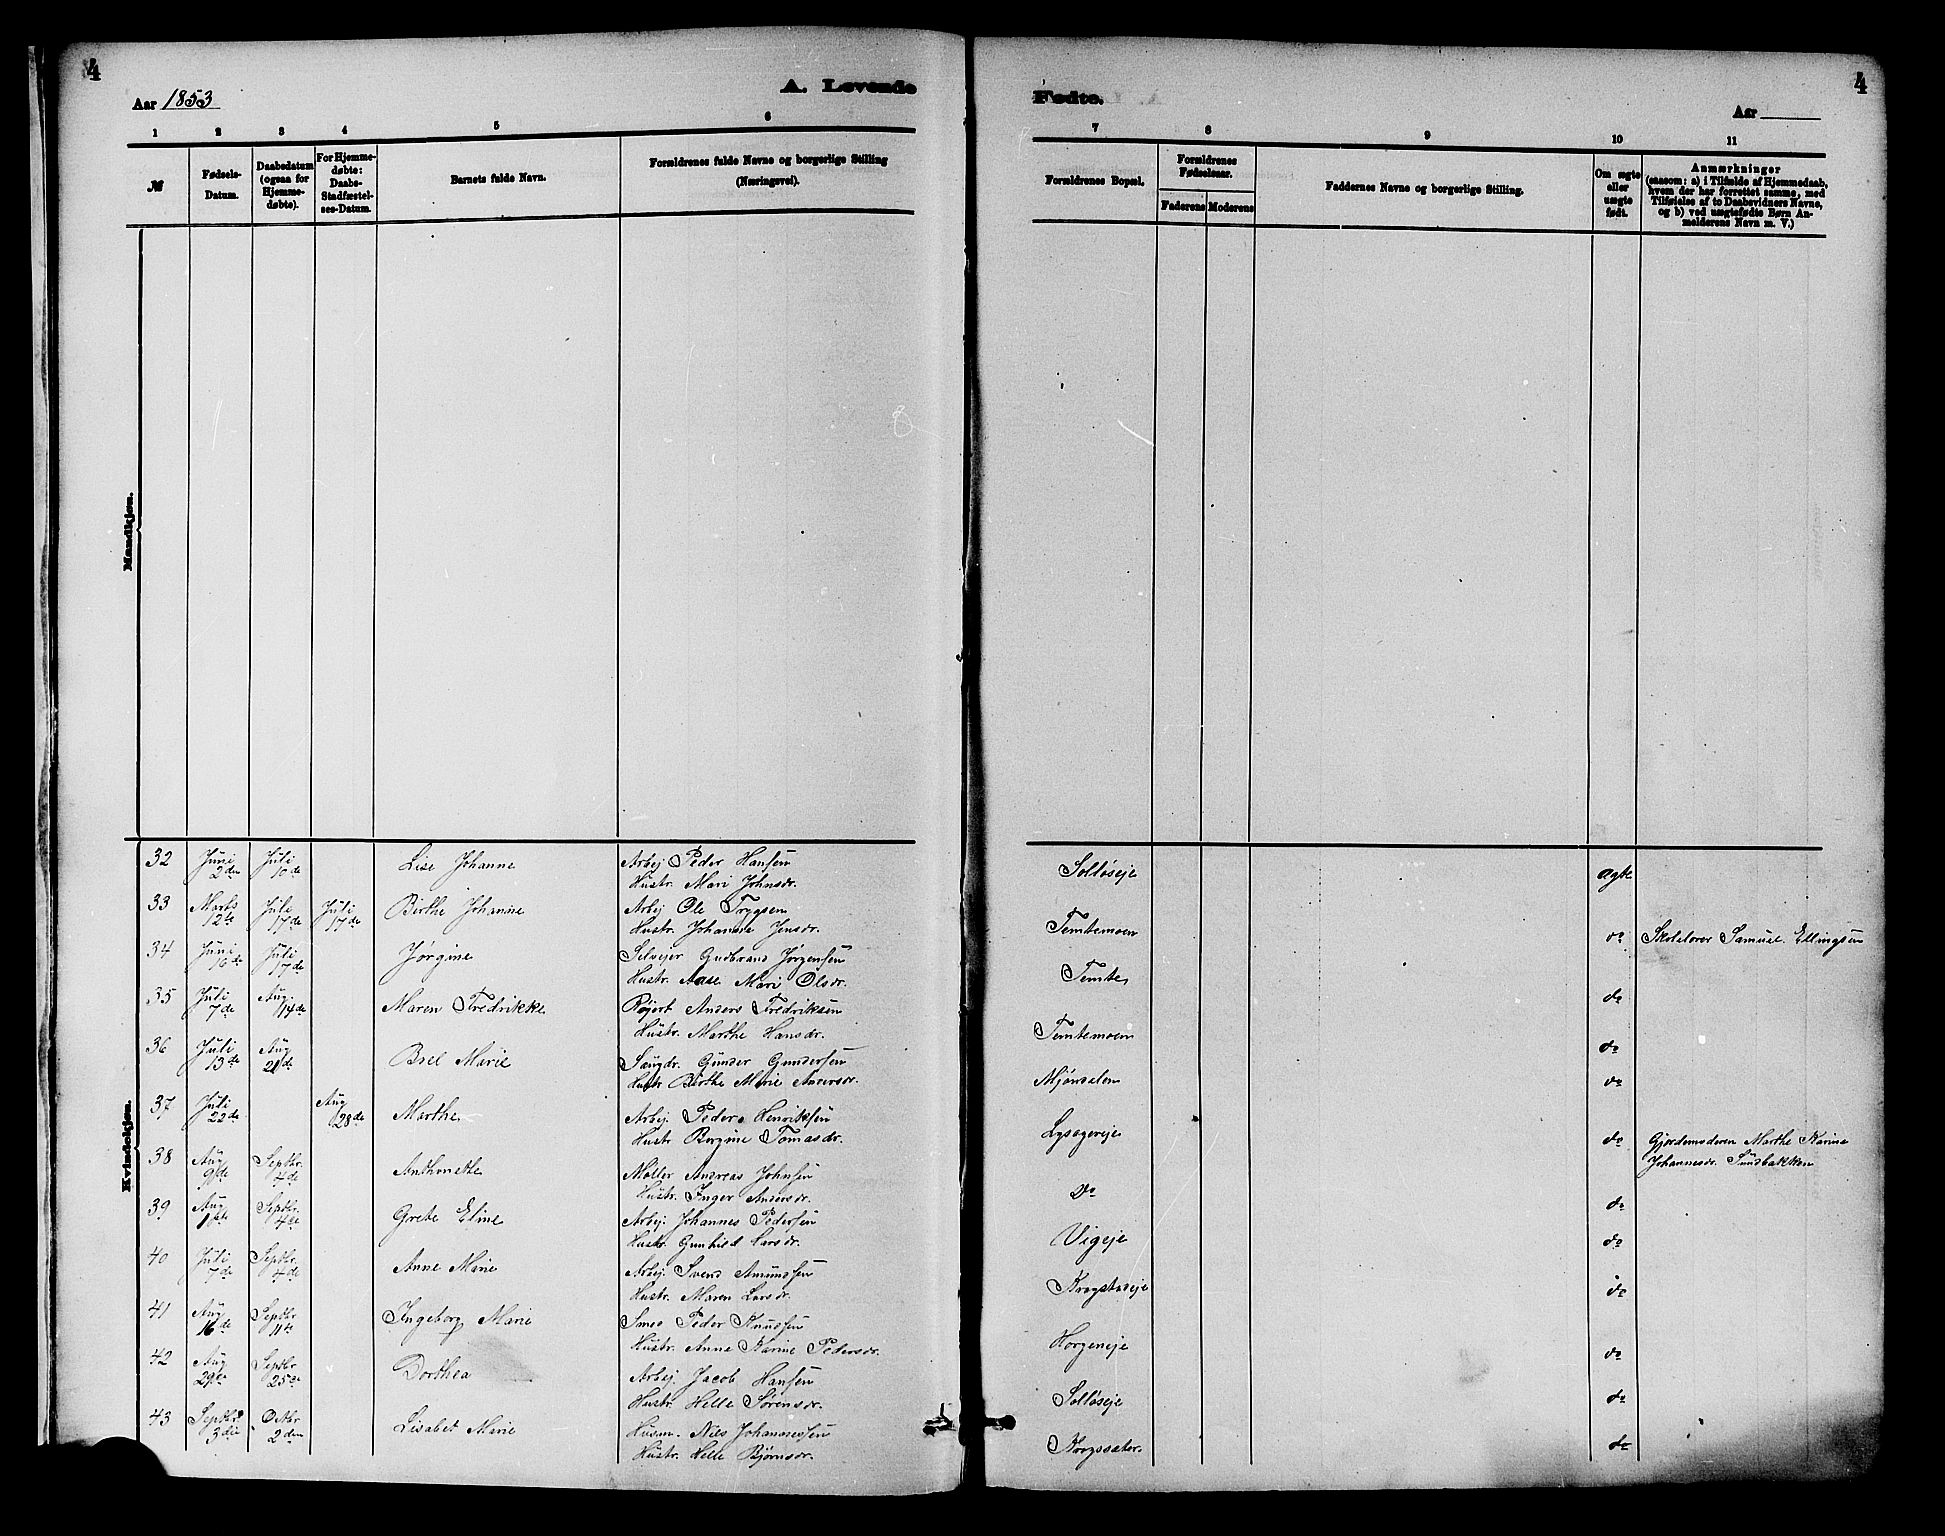 4
Aar 1853
A. Levende
1 2 3 4 5 6
№
Fødsels-
Datum.
Daabsdatum
(ogsaa for
Hjemme-
døbte).
For Hjemme-
døbte:
Daabs-
Stadfæstel-
ses-Datum.
Barnets fulde Navn.
Forældrenes fulde Navne og borgerlige Stilling
(Næringsvei).
Mandkjøn.
Kvindekjøn.
32 Juni 2den Juli 10de Lise Johanne Arbej Peder Hansen
Hustr. Mari Johnsdr.
33 Marts 12te Juli 17de Juli 17de Birthe Johanne Arbej Ole Trygsen
Hustr. Johanne Jensdr.
34 Juni 16de Juli 17de Jørgine Selvejer Gudbrand Jørgensen
Hustr. Aase Mari Olsdr.
35 Juli 7de Aug 14de Maren Fredrikke Røjert Anders Fredriksen
Hustr. Marthe Hansdr.
36 Juli 13de Aug 21de Brel Marie Saugdr. Gunder Gundersen
Hustr Birthe Marie Andersdr.
37 Juli 22de Aug 28de Marthe Arbej. Peder Henriksen
Hustr Bergine Tomasdr.
38 Aug 9de Septbr. 4de Anthonette Møller Andreas Johnsen
Hustr. Inger Andersdr.
39 Aug 1ste Septbr. 4de Grete Eline Arbej. Johannes Pedersen
Hustr. Gunhild Larsdr.
40 Juli 7de Septbr. 4de Anne Marie Arbej. Svend Amundsen
Hustr. Maren Larsdr.
41 Aug 16de Septbr 11te Ingeborg Marie Smed Peder Knudsen
Hustr. Anne Karine Pedersdr.
42 Aug 29de Septbr 25de Dorthea Arbej. Jacob Hansen
Hustr. Helle Sørensdr.
43 Septbr. 3die Octbr 2den Lisabet Marie Husm. Nils Johannessen
Hustr. Helle Bjørnsdr.
4
Fødte.
Aar
7 8 9 10 11
Forældrenes Bopæl.
Forældrenes
Fødselsaar.
Faderens Moderens
Faddernes Navne og borgerlige Stilling.
Om ægte
eller
uægte
født.
Anmærkninger
(saasom: a) i Tilfælde af Hjemmedaab,
hvem der har forrettet samme, med
Tilføielse af to Daabsvidners Navne,
og b) ved uægtefødte Børn An-
melderens Navn m. V.)
Solløseje ægte
Temtemoen do Skolelærer Samuel Ellingsen
Temte do
Temtemoen do
Mjøndalen do
Lysagereje do Gjordemoderen Marthe Karine
Johannesdr. Sundbakken
Do do
Vigeje do
Krogstadeje do
Horgeneje do
Solløseje do
Krogssater. do